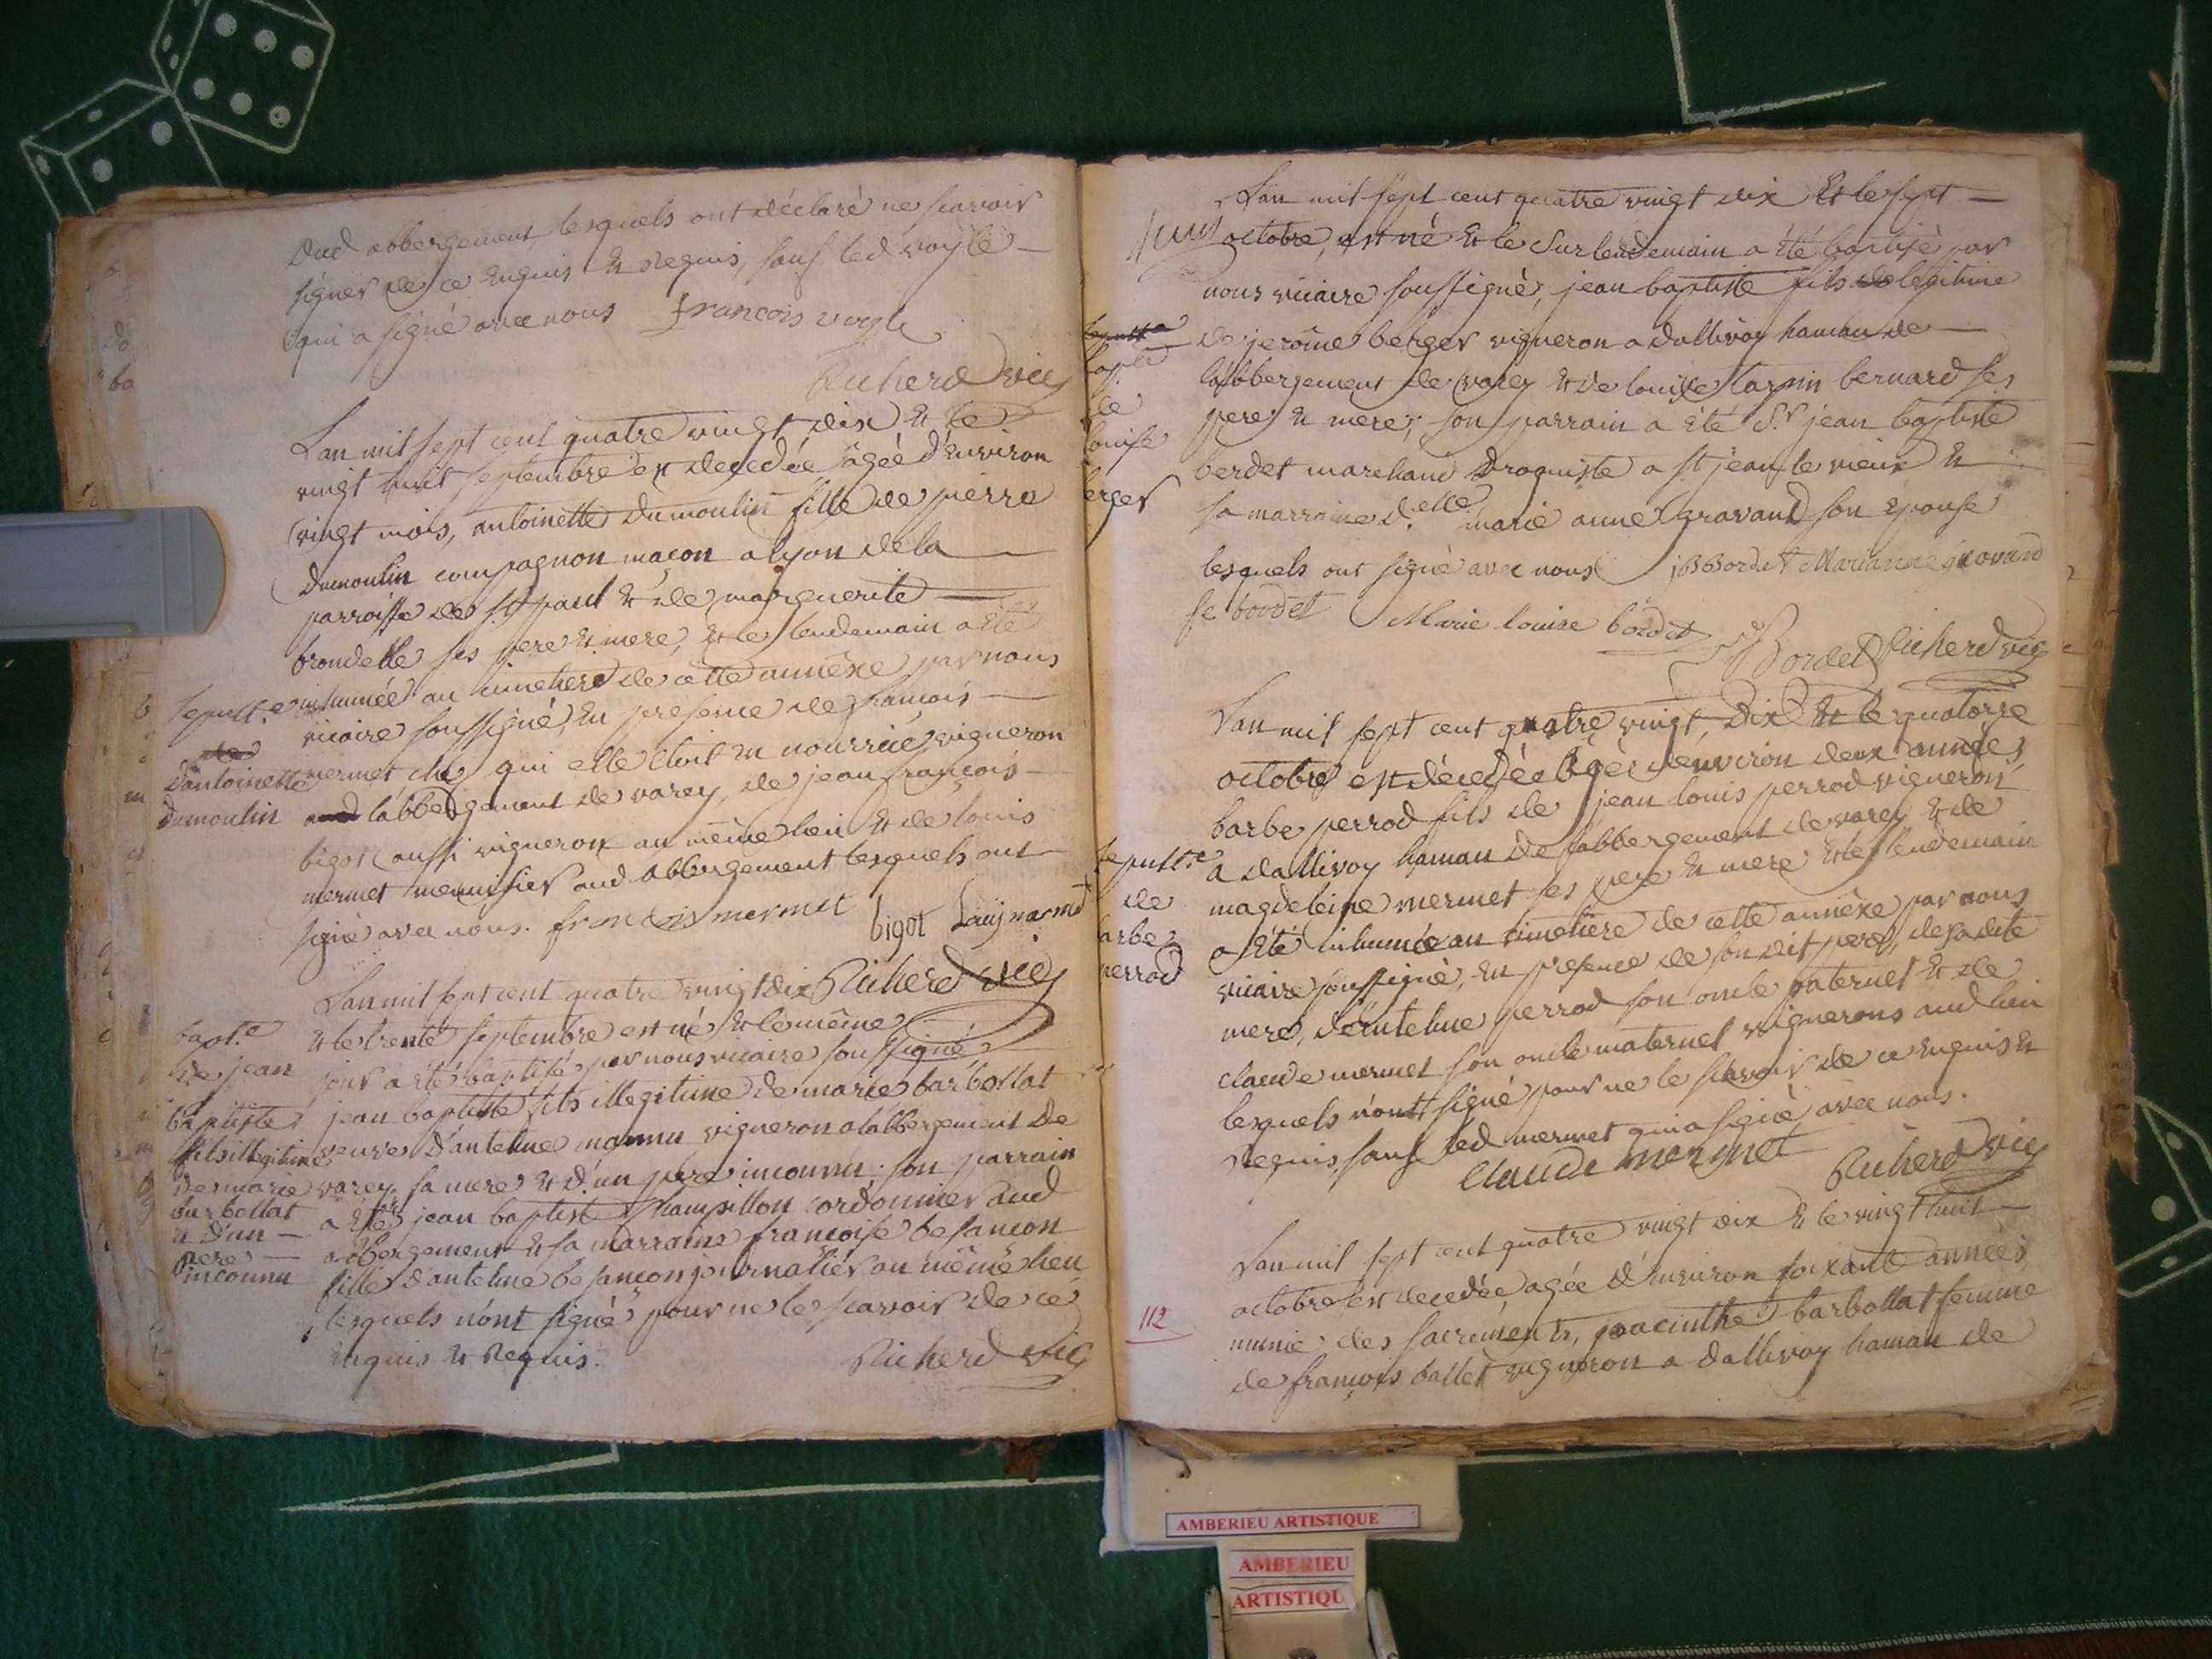 dud abbergement, lesquels ont déclaré ne scavoir
signer de ce enquis et requis, sauf led voyle
qui a signé avec nous francois voyle
Richerd vic
Lan mil sept cent quatre vingt dix et le
vingt huit septembre est decedée agée d'environ
vingt mois, antoinette dumoulin fille de pierre
dumoulin compagnon maçon a lyon de la
parroisse de st paul et de marguerite
brondelle ses pere et mere, et le lendemain a été
sepult.e
d'antoinette
dumoulin
inhumée au cimetiere de cette annêxe par nous
vicaire soussigné, en presence de francois
mermet chez qui elle etoit en nourrice, vigneron
a l'abbergement de varey, de jean françois
bigot aussi vigneron au même lieu et de louis
mermet menuisier aud abbergement lesquels ont
signé avec nous. francois mermet bigot Louy marmet
Richerd vic
Lan mil sept cent quatre vingt dix
bapt.e
de jean
baptiste
fils illegitime
de marie
barbollat
et d'un
pere
inconnu
et le trente septembre est né et le même
jour a été baptisé par nous vicaire soussigné
jean baptiste fils illegitime de marie barbollat
veuve d'antelme vigneron a l'abbergement de
varey sa mere et d'un pere inconnu; son parrain
a été jean baptiste champillon cordonnier aud
abbergement et sa marraine francoise besancon
fille d'antelme besancon journalier au même lieu
lesquels n'ont signé pour ne le scavoir de ce
enquis et requis.
Richerd vic
Lan mil sept cent quatre vingt dix et le sept
octobre, est né et le surlendemain a été baptisé par
nous vicaire soussigné, jean baptiste fils legitime
bapt.e
de
louise
berger
de jerôme berger vigneron a dallivoy hamau de
l'abbergement de varey et de louise tarpin bernard ses
pere et mere; son parrain a été S.r jean baptiste
berdet marchand droguiste a st jean le vieux et
sa marraine d.elle marie anne gravand son epouse
lesquels ont signé avec nous jB Bordet Marianne gravand
fe bordet Marie louise bordet
Bordet Richerd vic
Lan mil sept cent quatre vingt dix et le quatorze
octobre est décedée agée d'environ deux années
barbe perrod fils de jean louis perrod vigneron
sepult.e
de
barbe
perrod
a dallivoy hamau de l'abbergement de varey et de
magdeleine mermet ses pere et mere et le lendemain
a été inhumée au cimetiere de cette annêxe par nous
vicaire soussigné, en presence de son dit pere, de sadite
mere, d'antelme perrod son oncle paternel et de
claude mermet son oncle maternel vignerons aud lieu
lesquels n'ont signé pour ne le scavoir de ce enquis et
requis, sauf led mermet qui a signé avec nous.
claude mermet Richerd vic
Lan mil sept cent quatre vingt dix et le vingt huit
octobre est decedée agée d'environ soixante années,
munie des sacrements, jacinthe barbollat femme
de françois ballet vigneron a dallivoy hamau de
112
AMBERIEU ARTISTIQUE
AMBERIEU
ARTISTIQU